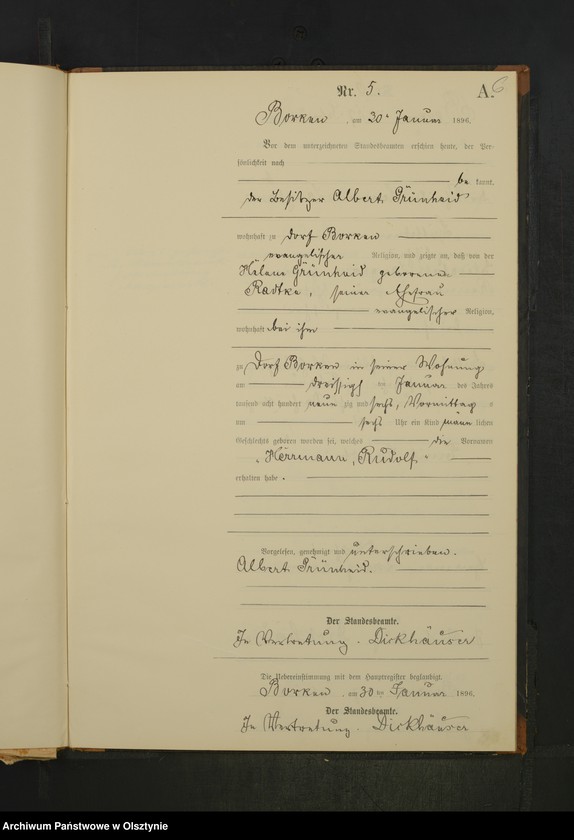 Nr. 5.
A. 6
Borken, am 30. Januar 1896.
Vor dem unterzeichneten Standesbeamten erschien heute, der Per-
sönlichkeit nach
be kannt,
der Besitzer Albert Grünheid
wohnhaft zu Dorf Borken
evangelischer Religion, und zeigte an, daß von der
Helene Grünheid geborenen
Radtke, seiner Ehefrau
evangelischer Religion,
wohnhaft bei ihm
zu Dorf Borken in seiner Wohnung
am dreißigsten Januar des Jahres
tausend acht hundert neun zig und sechs, Vormittag s
um sechs Uhr ein Kind männ lichen
Geschlechts geboren worden sei, welches die Vornamen
"Herrmann, Rudolf"
erhalten habe.
Vorgelesen, genehmigt und unterschrieben.
Albert Grünheid.
Der Standesbeamte.
In Vertretung. Dickhäuser
Die Uebereinstimmung mit dem Hauptregister beglaubigt.
Borken, am 30ten Januar 1896.
Der Standesbeamte.
In Vertretung. Dickhäuser
Archiwum Państwowe w Olsztynie